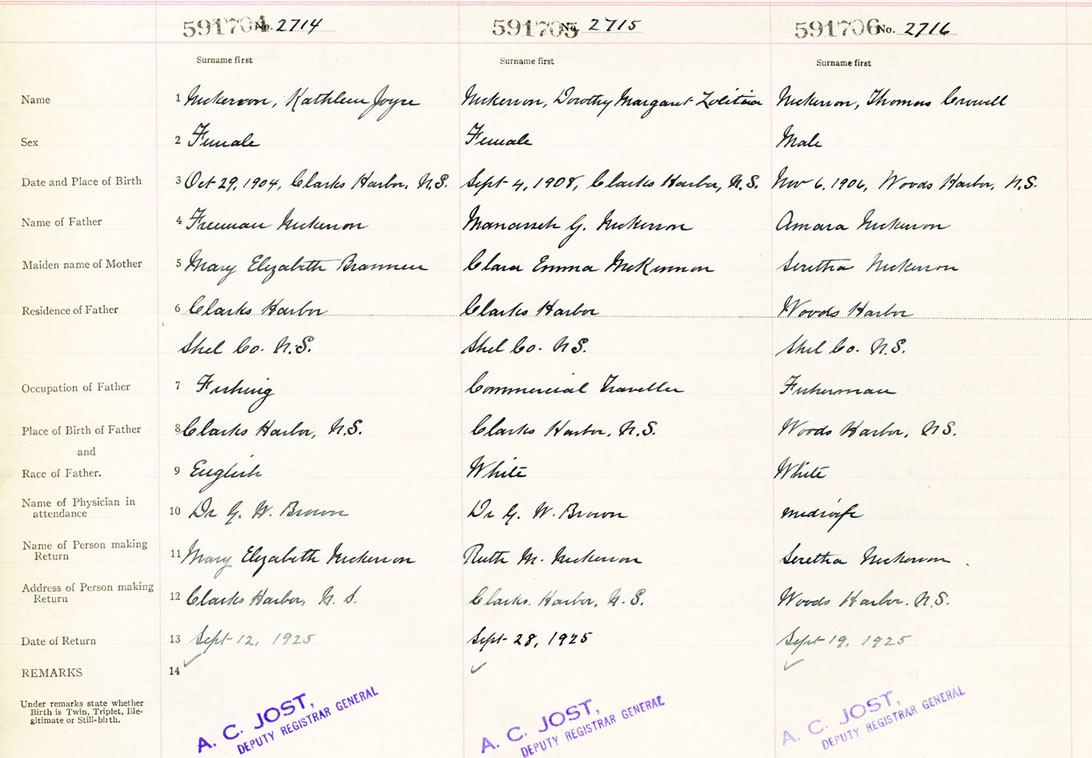 591704 No. 2714 591705 No. 2715 591706 No. 2716
Surname first Surname first Surname first
Name 1 Nickerson, Kathleen Joyce Nickerson, Dorothy Margaret Nickerson, Thomas Crowell
Sex 2 Female Female Male
Date and Place of Birth 3 Oct 29, 1904, Clarks Harbor, N.S. Sept 4, 1908, Clarks Harbor, N.S. Nov 6, 1906, Woods Harbor, N.S.
Name of Father 4 Freeman Nickerson Manasseh G. Nickerson Amara Nickerson
Maiden name of Mother 5 Mary Elizabeth Brannen Clara Emma McKinnon Seretha Nickerson
Residence of Father 6 Clarks Harbor Clarks Harbor Woods Harbor
Shel Co. N.S. Shel Co. N.S. Shel Co. N.S.
Occupation of Father 7 Fishing Commercial Traveller Fisherman
Place of Birth of Father 8 Clarks Harbor, N.S. Clarks Harbor, N.S. Woods Harbor, N.S.
and
Race of Father. 9 English White White
Name of Physician in attendance 10 Dr G. W. Brown Dr G. W. Brown midwife
Name of Person making Return 11 Mary Elizabeth Nickerson Ruth M. Nickerson Seretha Nickerson
Address of Person making Return 12 Clarks Harbor, N.S. Clarks Harbor, N.S. Woods Harbor. N.S.
Date of Return 13 Sept 12, 1925 Sept 28, 1925 Sept 19, 1925
REMARKS 14
Under remarks state whether
Birth is Twin, Triplet, Ille-
gitimate or Still-birth.
A. C. JOST, A. C. JOST, A. C. JOST,
DEPUTY REGISTRAR GENERAL DEPUTY REGISTRAR GENERAL DEPUTY REGISTRAR GENERAL